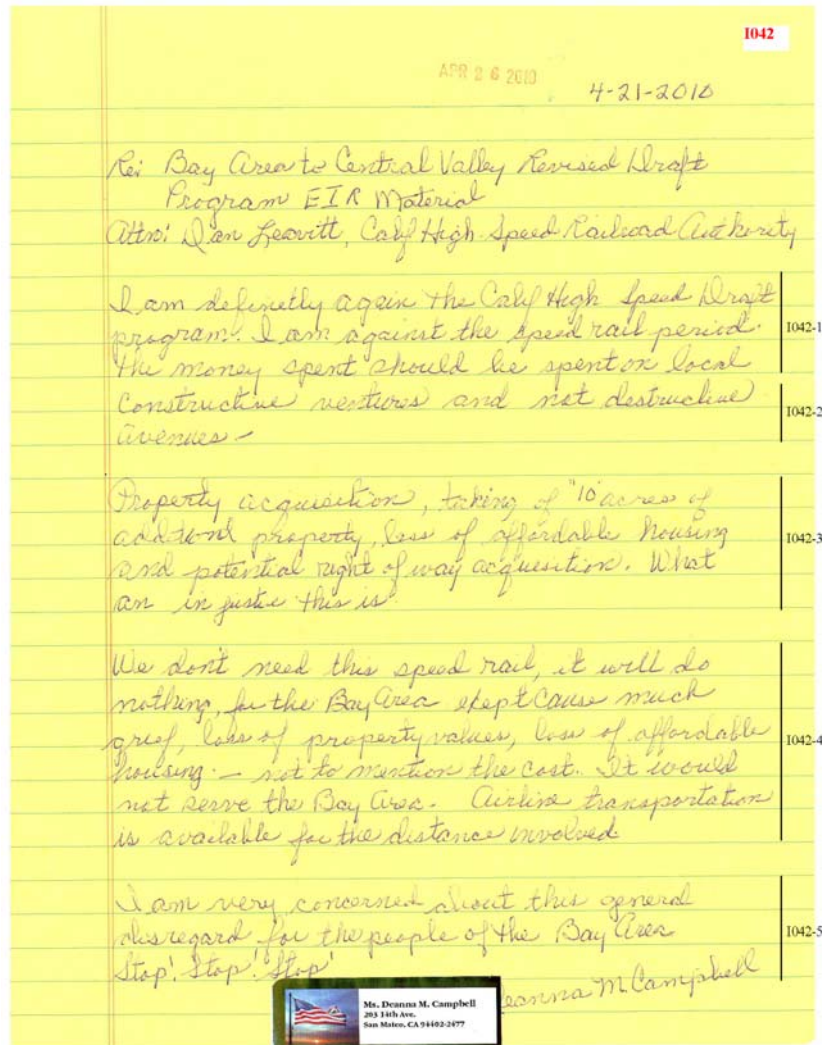 I042
APR 26 2010
4-21-2010
Re: Bay Area to Central Valley Revised Draft
Program EIR Material
Attn: Dan Leavitt, Calif High Speed Railroad Authority
I am definetly again the Calif High Speed Draft
program. I am against the speed rail period.
I042-1
the money spent should be spent on local
constructive ventures and not destructive
I042-2
avenues -
Property acquisition, taking of "10 acres of
additionl property, loss of affordable housing
I042-3
and potential right of way acquesition. What
an injustie this is!
We don't need this speed rail, it will do
nothing, for the Bay Area exept cause much
grief, loss of property values, loss of affordable
I042-4
housing - not to mention the cost. It would
not serve the Bay Area. Airline transportation
is available for the distance involved.
I am very concerned about this general
disregard for the people of the Bay Area
I042-5
Stop! Stop! Stop!
Deanna M Campbell
Ms. Deanna M. Campbell
203 14th Ave.
San Mateo, CA 94402-2477